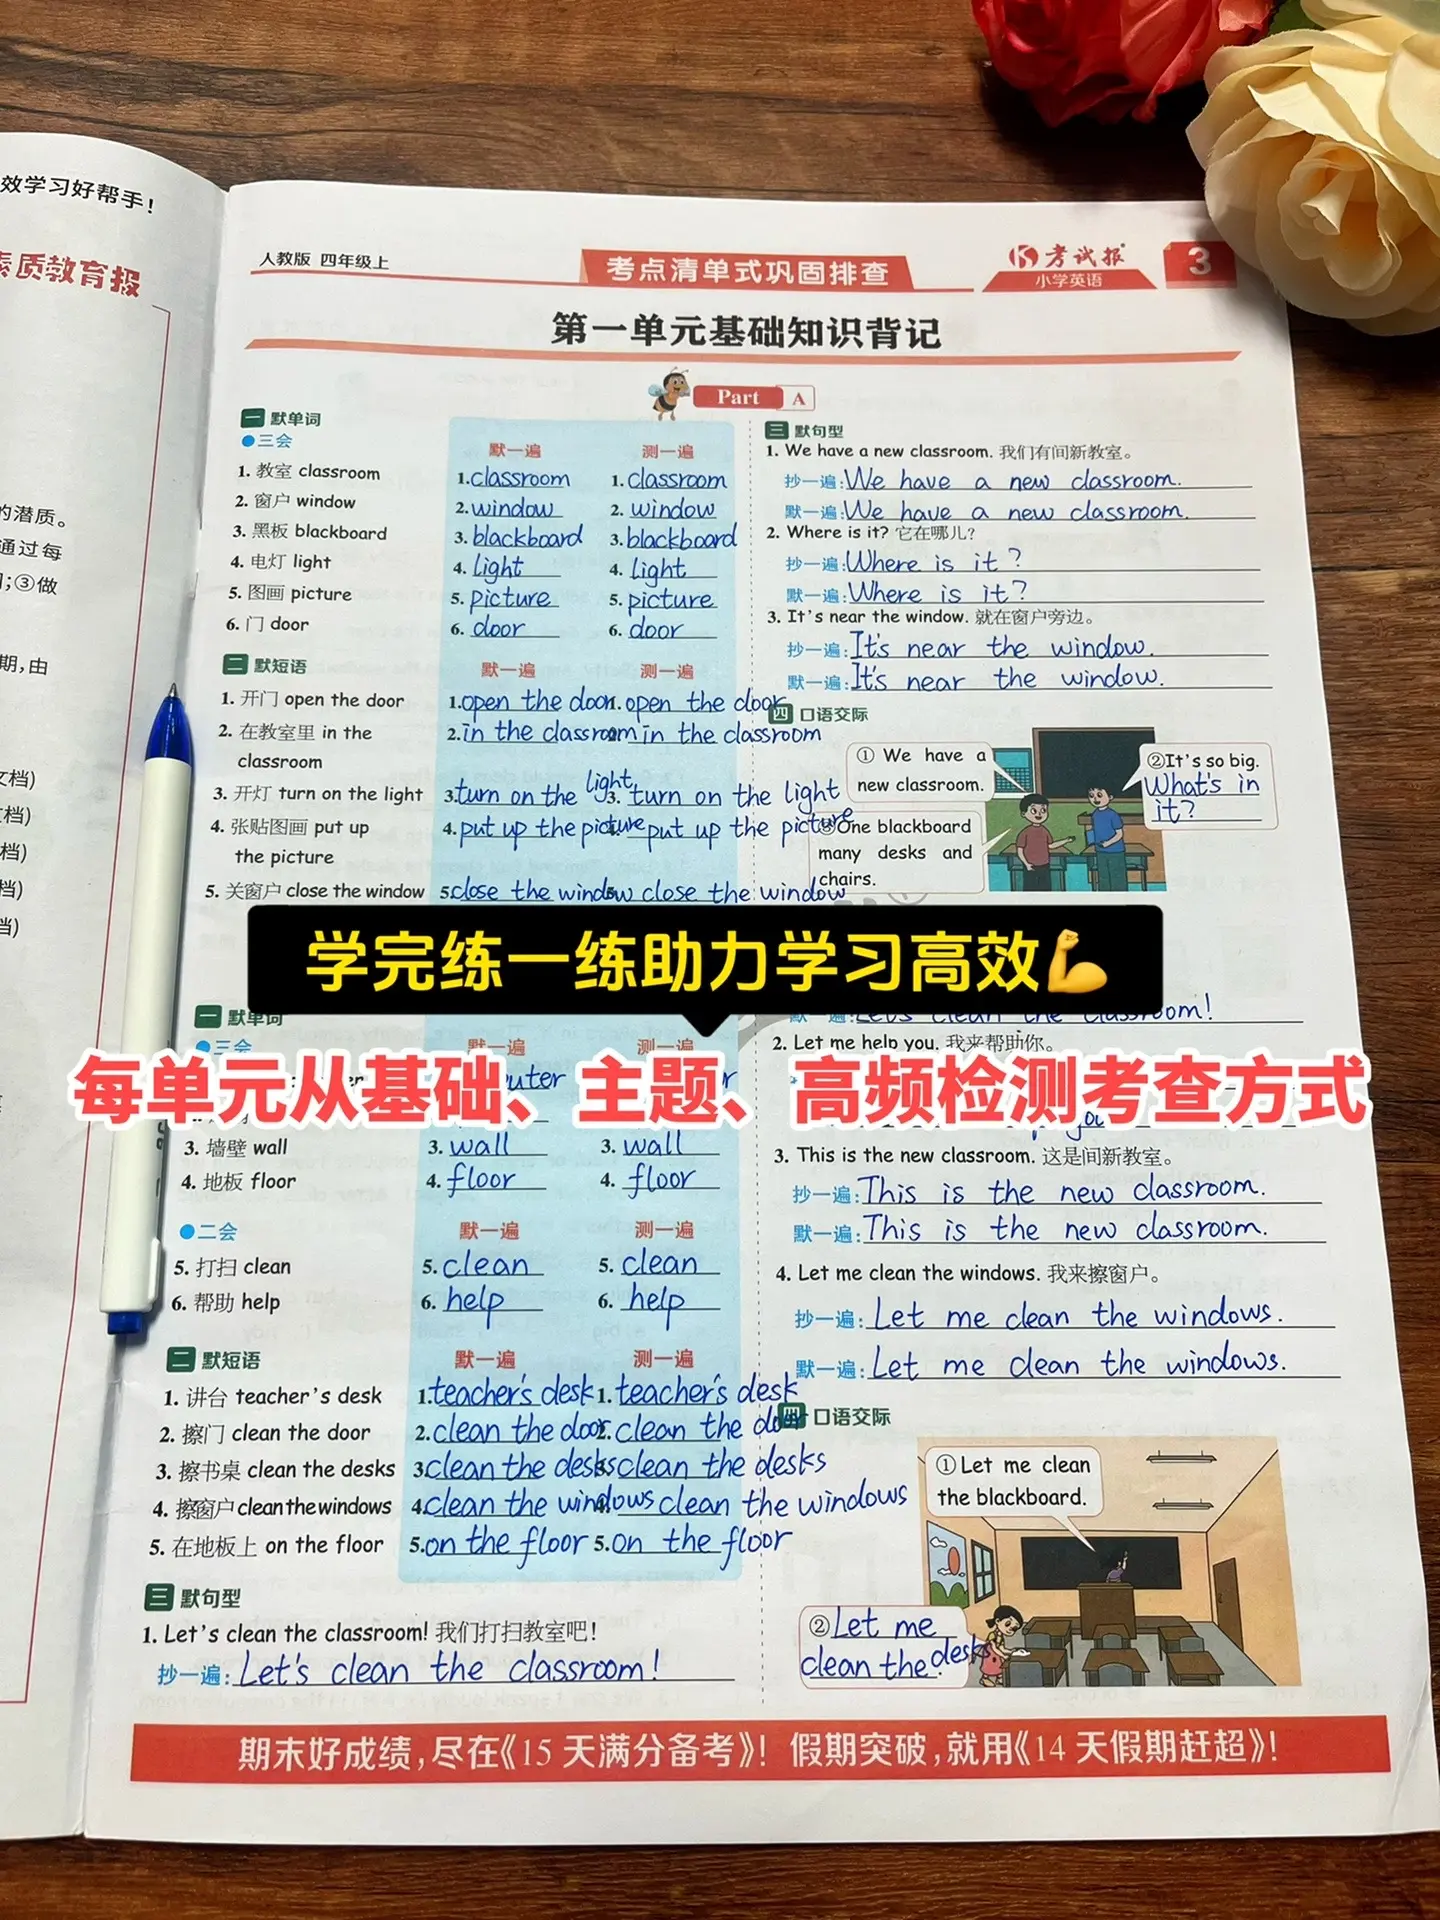 效学习好帮手！
素质教育报
的潜质。
通过每
；③做
期，由
文档)
档)
档)
档)
人教版 四年级上
考点清单式巩固排查
考试报
小学英语
3
第一单元基础知识背记
Part A
一 默单词
三会
默一遍 测一遍
1. 教室 classroom 1. classroom 1. classroom
2. 窗户 window 2. window 2. window
3. 黑板 blackboard 3. blackboard 3. blackboard
4. 电灯 light 4. light 4. light
5. 图画 picture 5. picture 5. picture
6. 门 door 6. door 6. door
二 默短语
默一遍 测一遍
1. 开门 open the door 1. open the door 1. open the door
2. 在教室里 in the 2. in the classroom 2. in the classroom
classroom
3. 开灯 turn on the light 3. turn on the light 3. turn on the light
4. 张贴图画 put up 4. put up the picture 4. put up the picture
the picture
5. 关窗户 close the window 5. close the window 5. close the window
三 默句型
1. We have a new classroom. 我们有间新教室。
抄一遍: We have a new classroom.
默一遍: We have a new classroom.
2. Where is it? 它在哪儿?
抄一遍: Where is it?
默一遍: Where is it?
3. It's near the window. 就在窗户旁边。
抄一遍: It's near the window.
默一遍: It's near the window.
四 口语交际
① We have a
new classroom.
②It's so big.
What's in
it?
③One blackboard
many desks and
chairs.
学完练一练助力学习高效💪
每单元从基础、主题、高频检测考查方式
一 默单词
三会
默一遍 测一遍
3. 墙壁 wall 3. wall 3. wall
4. 地板 floor 4. floor 4. floor
二会
默一遍 测一遍
5. 打扫 clean 5. clean 5. clean
6. 帮助 help 6. help 6. help
二 默短语
默一遍 测一遍
1. 讲台 teacher's desk 1. teacher's desk 1. teacher's desk
2. 擦门 clean the door 2. clean the door 2. clean the door
3. 擦书桌 clean the desks 3. clean the desks 3. clean the desks
4. 擦窗户 clean the windows 4. clean the windows 4. clean the windows
5. 在地板上 on the floor 5. on the floor 5. on the floor
三 默句型
1. Let's clean the classroom! 我们打扫教室吧!
抄一遍: Let's clean the classroom!
默一遍: Let's clean the classroom!
2. Let me help you. 我来帮助你。
3. This is the new classroom. 这是间新教室。
抄一遍: This is the new classroom.
默一遍: This is the new classroom.
4. Let me clean the windows. 我来擦窗户。
抄一遍: Let me clean the windows.
默一遍: Let me clean the windows.
四 口语交际
① Let me clean
the blackboard.
② Let me
clean the desks.
期末好成绩，尽在《15 天满分备考》！ 假期突破，就用《14 天假期赶超》！